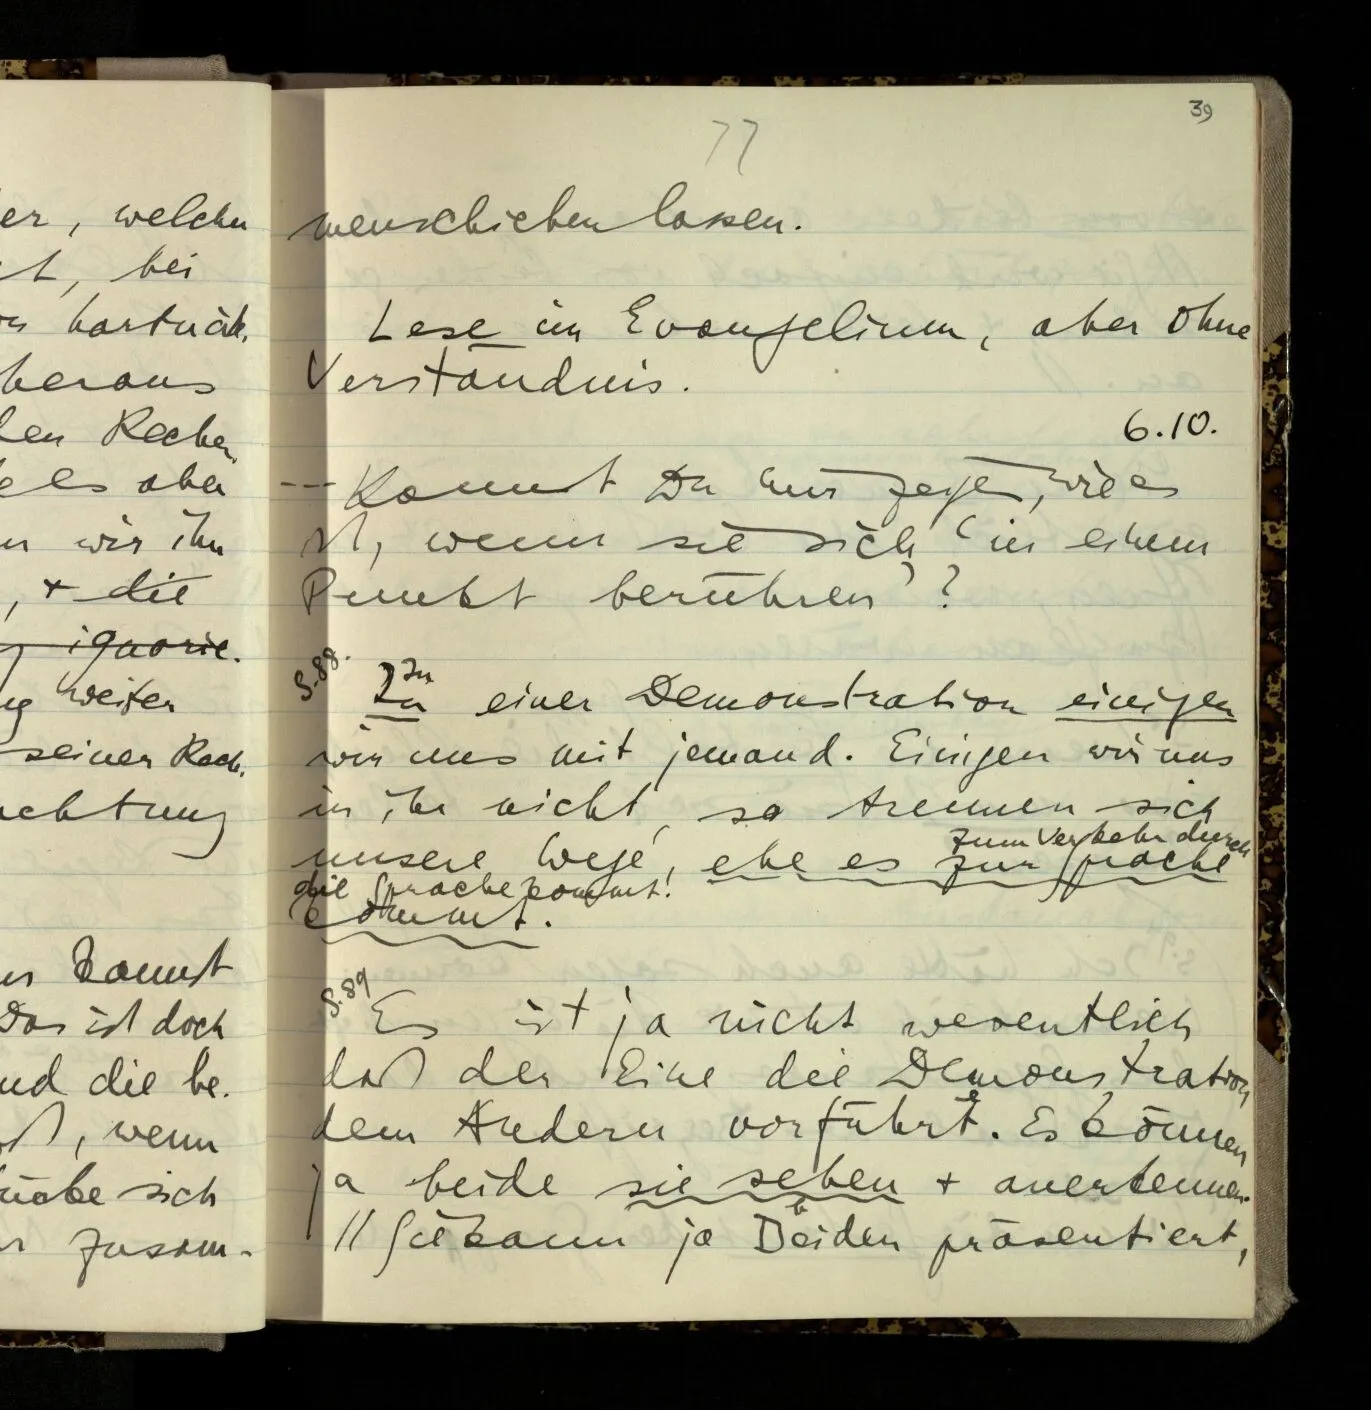 er, welchen
t, bei
hartnäck.
heraus
den Rechen
es aber
wir ihn
, + die
ignorie.
weiter
seiner Rech.
achtung
kannst
Das ist doch
und die be.
, wenn
sich
zusam-
39
77
menschieben lassen.
Lese im Evangelium, aber ohne
Verständnis.
6.10.
--- Kannst Du mir zeigen, wie es
ist, wenn sie sich 'in einem
Punkt berühren'?
S.88.
Zu
Zu einer Demonstration einigen
wir uns mit jemand. Einigen wir uns
in ihr nicht, so trennen sich
zum Verkehr durch
unsere Wege, ehe es zur Sprache
die Sprache kommt!
kommt.
S.89
Es ist ja nicht wesentlich
daß der Eine die Demonstration
dem Andern vorführt. Es können
ja beide sie sehen + anerkennen.
// Sie kann ja Beiden präsentiert,